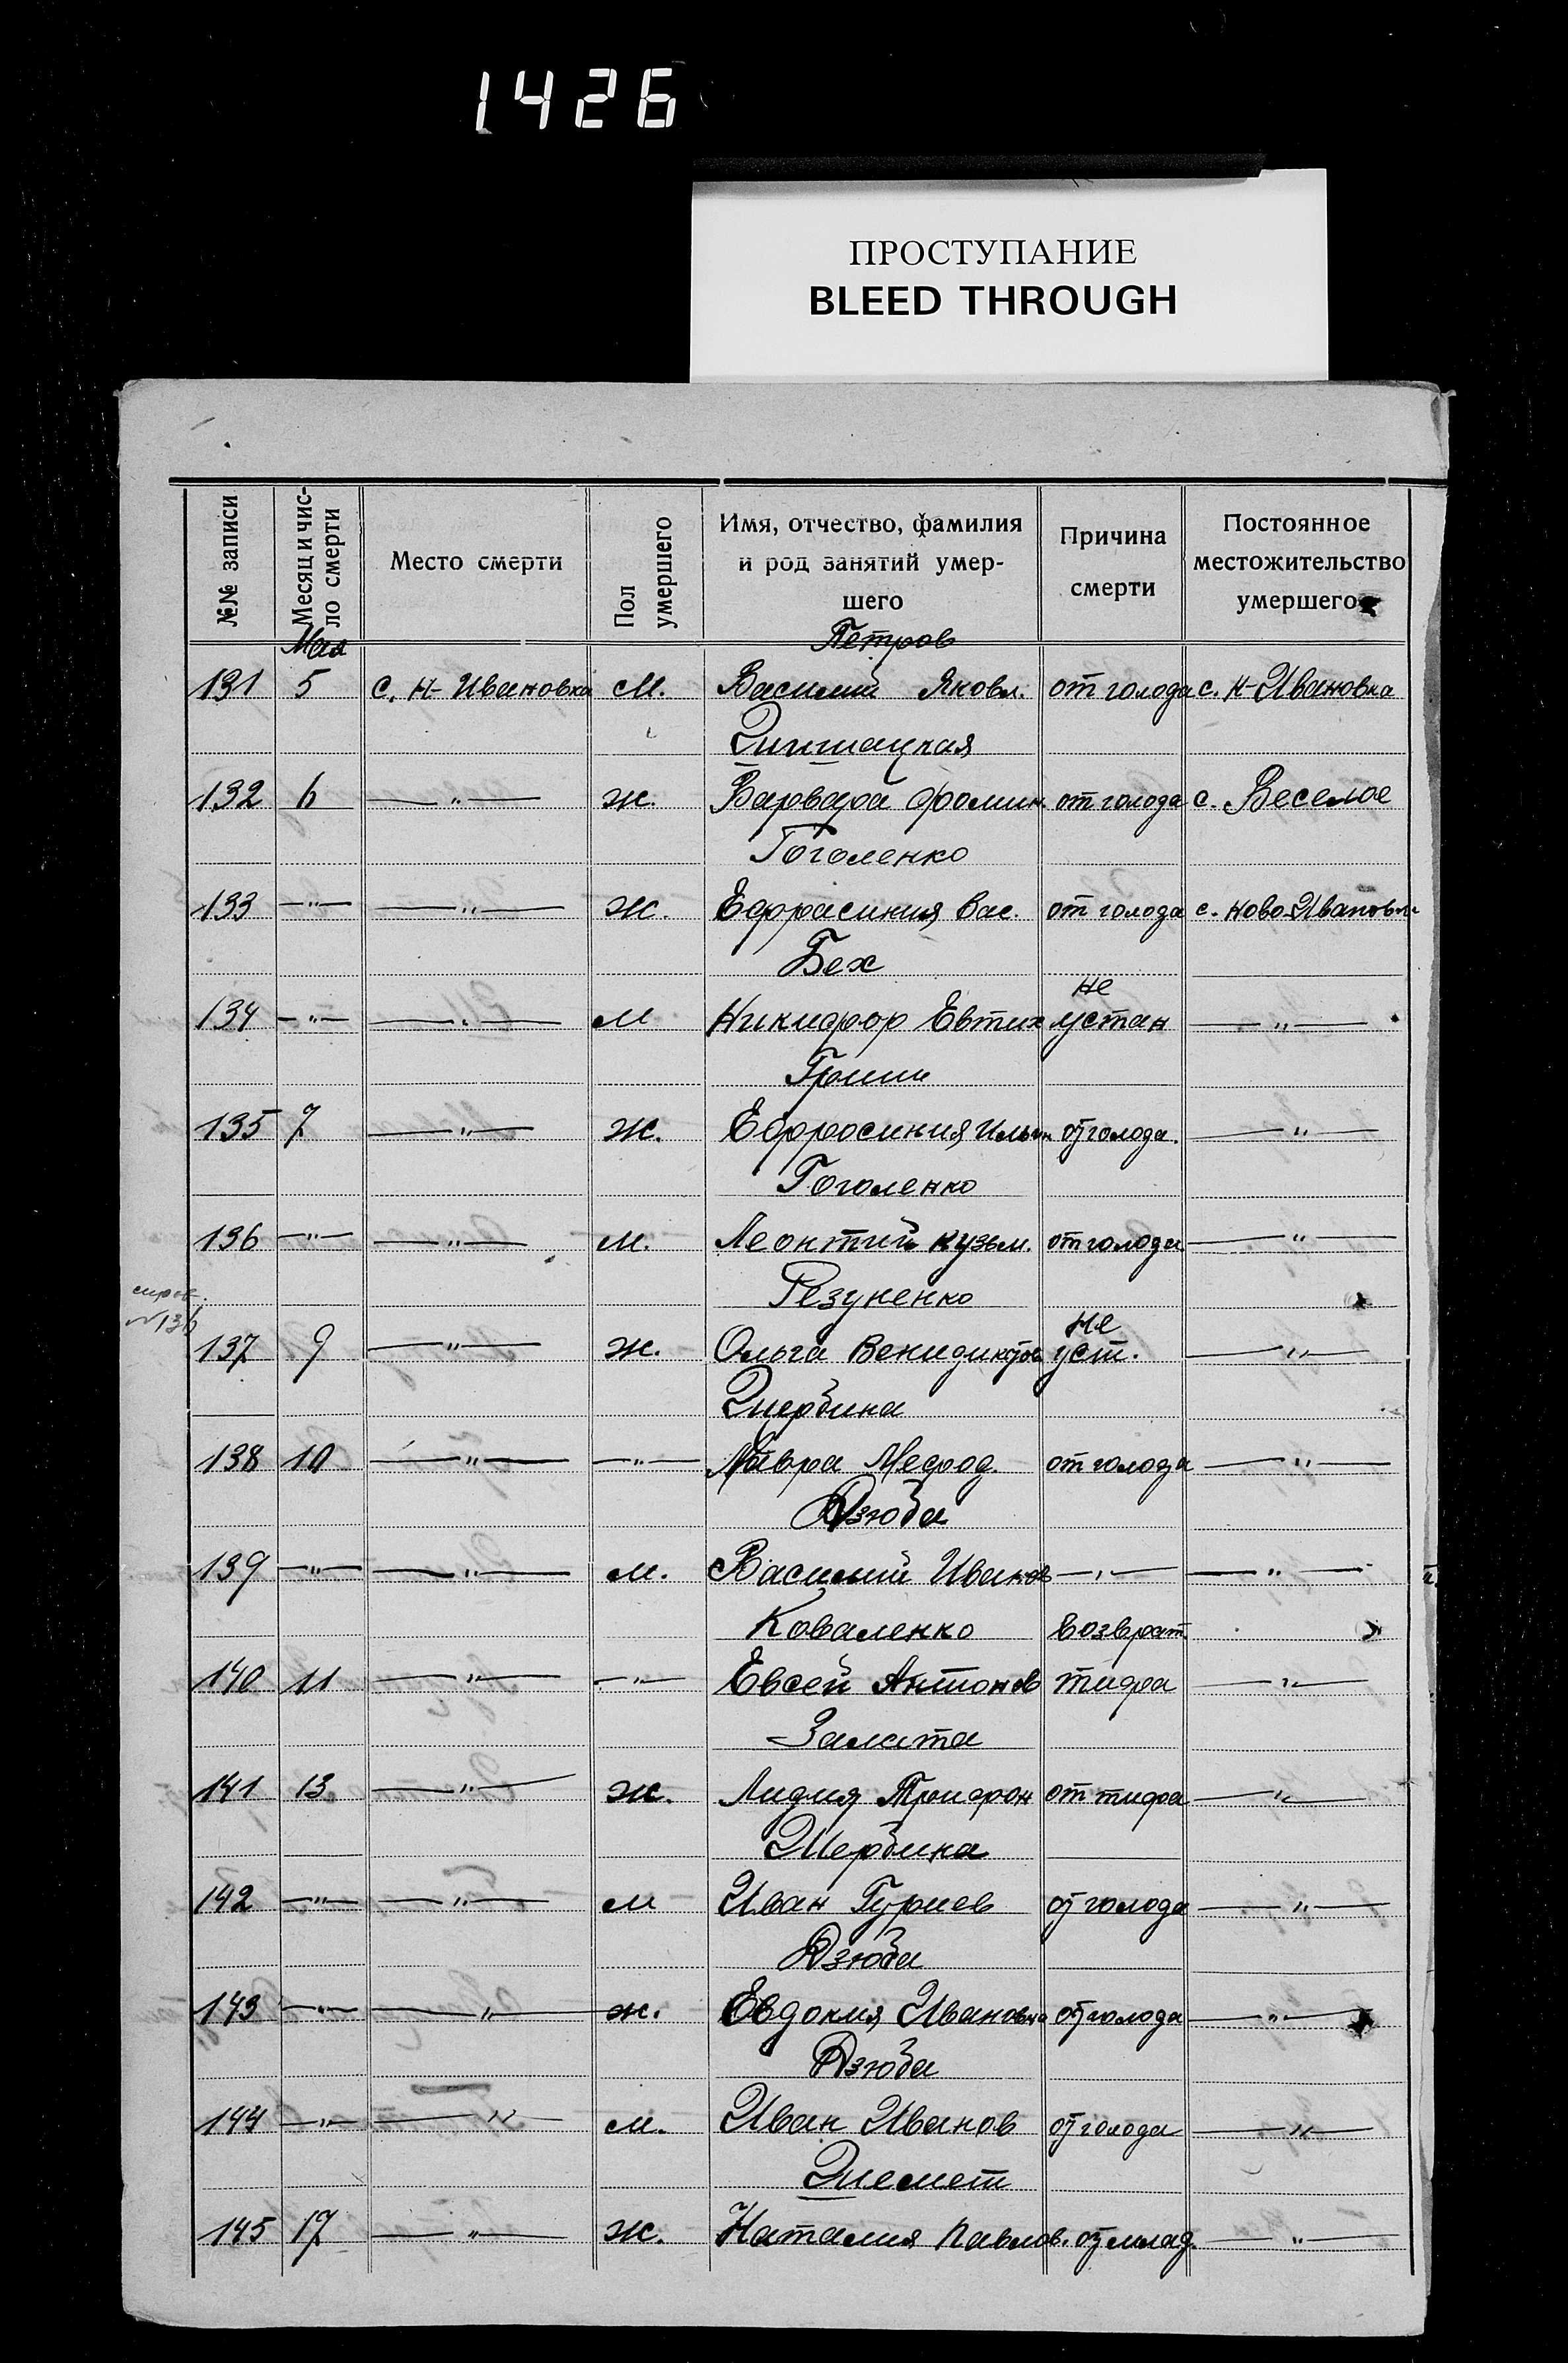 1426
ПРОСТУПАНИЕ
BLEED THROUGH
№№ записи
Месяц и чис-
ло смерти
Место смерти
Пол
умершего
Имя, отчество, фамилия
и род занятий умер-
шего
Причина
смерти
Постоянное
местожительство
умершего
Мая
Петров
131 5 с. Н-Ивановка м. Василий Яковл. от голода с. Н-Ивановка
132 6 —"— ж. Варвара Фомин. от голода с. Веселое
Гоголенко
133 —"— —"— ж. Ефрасиния Вас. от голода с. Ново-Ивановк
Бех
не
134 —"— —"— м Никифор Евтих устан —"—
135 7 —"— ж. Ефросиния Ильин от голода. —"—
Гоголенко
136 —"— —"— м. Леонтий Кузьм. от голода —"—
Резуненко
№136
не
137 9 —"— ж. Ольга Венидиктов уст. —"—
Щербина
138 10 —"— —"— Мавра Мефод. от голода —"—
Дзюба
139 —"— —"— м. Василий Иванов —"— —"—
Коваленко возврат.
140 11 —"— —"— Евсей Антонов тифа —"—
Залата
141 13 —"— ж. Лидия Трифон от тифа —"—
Щербина
142 —"— —"— м Иван Гуриев от голода —"—
Дзюба
143 —"— —"— ж. Евдокия Ивановна от голода —"—
Дзюба
144 —"— —"— м. Иван Иванов от голода —"—
Шемет
145 17 —"— ж. Наталия Павлов. от млад. —"—